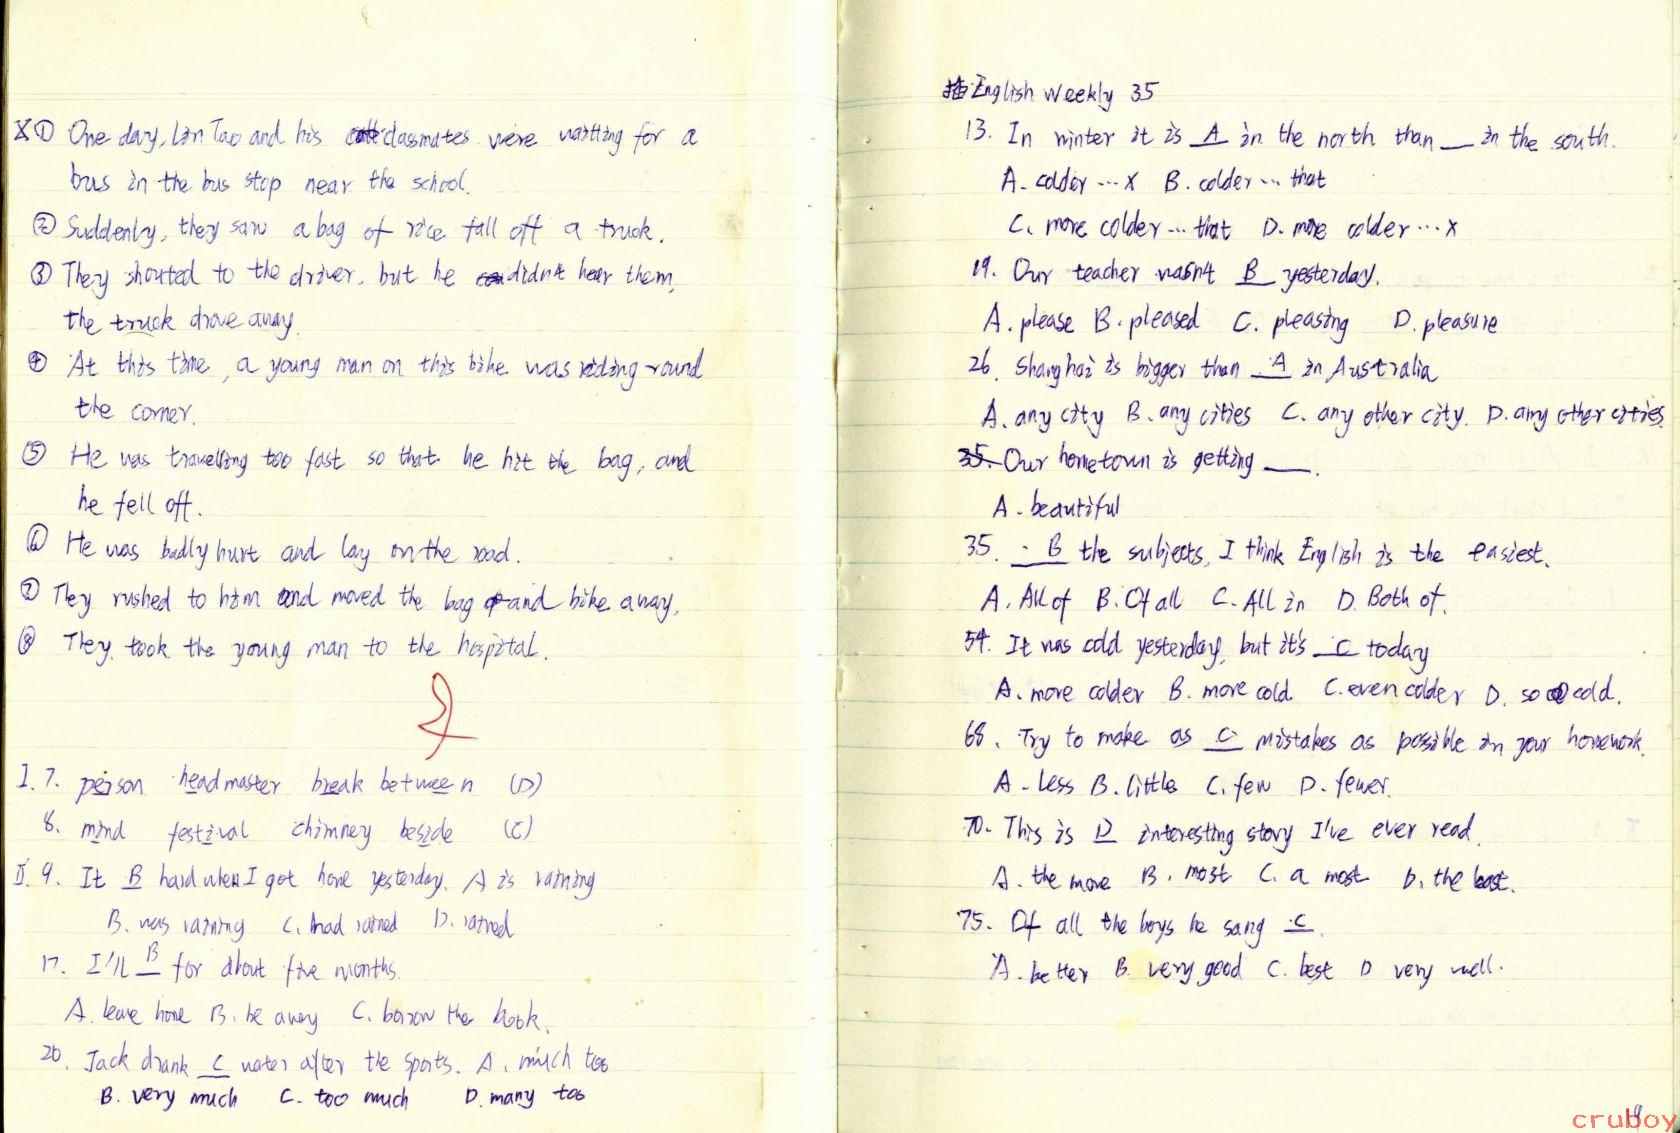 X① One day, Lin Tao and his classmates were waitting for a
bus in the bus stop near the school.
② Suddenly, they saw a bag of rice fall off a truck.
③ They shouted to the driver, but he didn't hear them,
the truck drove away.
④ At this time, a young man on this bike was riding round
the corner.
⑤ He was travelling too fast so that he hit the bag, and
he fell off.
⑥ He was badly hurt and lay on the road.
⑦ They rushed to him and moved the bag and bike away.
⑧ They took the young man to the hospital.
I. 7. person headmaster break between (D)
8. mind festival chimney beside (C)
II. 9. It B hard when I got home yesterday. A is raining
B. was raining C. had rained D. rained
17. I'll B for about five months.
A. leave home B. be away C. borrow the book.
20. Jack drank C water after the sports. A. much too
B. very much C. too much D. many too
English Weekly 35
13. In winter it is A in the north than __ in the south.
A. colder ... x B. colder ... that
C. more colder ... that D. more colder ... x
19. Our teacher wasn't B yesterday.
A. please B. pleased C. pleasing D. pleasure
26. Shanghai is bigger than A in Australia
A. any city B. any cities C. any other city. D. any other cities
35. Our hometown is getting __.
A. beautiful
35. B the subjects, I think English is the easiest.
A. All of B. Of all C. All in D. Both of.
54. It was cold yesterday, but it's C today
A. more colder B. more cold C. even colder D. so cold.
68. Try to make as C mistakes as possible in your homework.
A. Less B. little C. few D. fewer.
70. This is D interesting story I've ever read.
A. the more B. most C. a most D. the
75. Of all the boys he sang C.
A. better B. very good C. best D very well.
19
cruboy